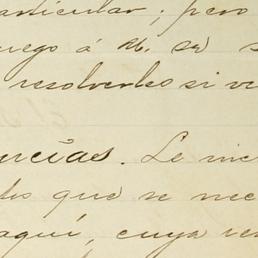 articular; pero
ruego á V. se s
resolverlos si ve
ncias. Le inc
los que se nec
aquí, cuya ve